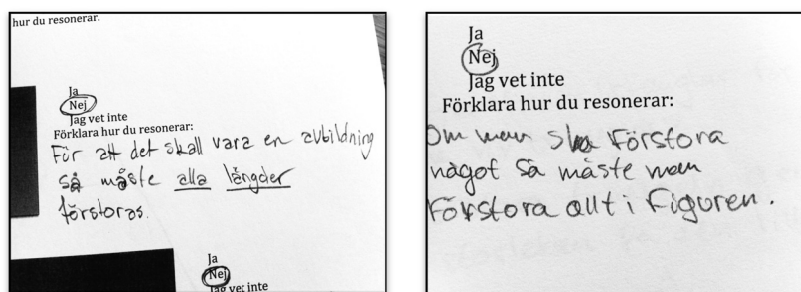 hur du resonerar.
Ja
Nej
Jag vet inte
Förklara hur du resonerar:
För att det skall vara en avbildning
så måste alla längder
förstoras.
Ja
Nej
Jag vet inte
Ja
Nej
Jag vet inte
Förklara hur du resonerar:
Om man ska förstora
något så måste man
Förstora allt i Figuren.